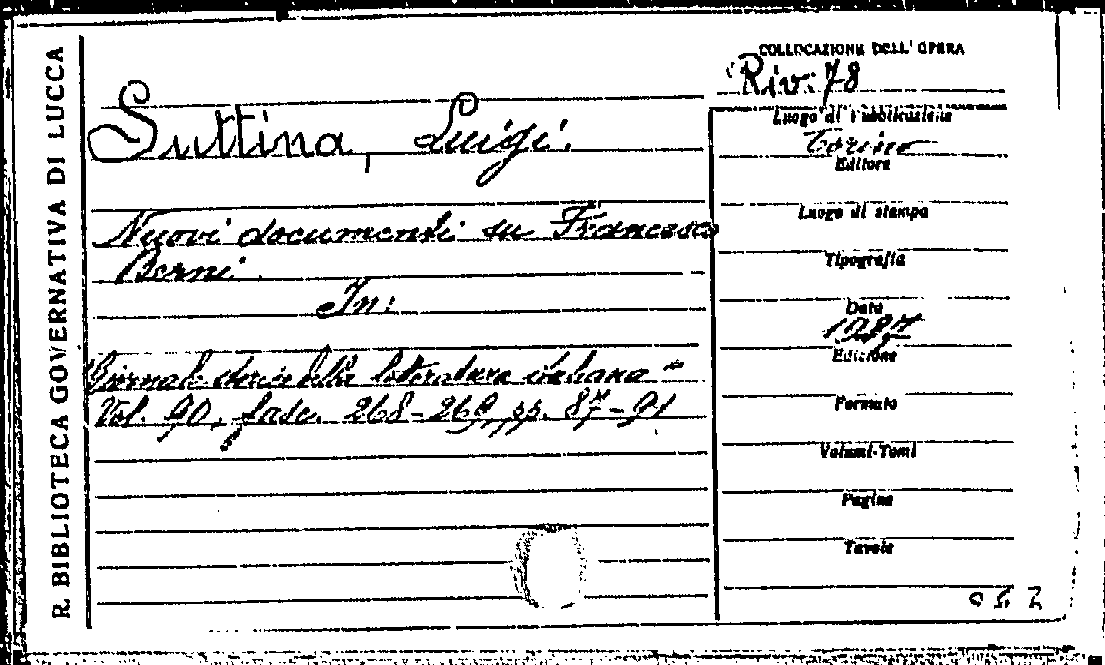 R. BIBLIOTECA GOVERNATIVA DI LUCCA
COLLOCAZIONE DELL' OPERA
Riv. 78
Suttina, Luigi.
Luogo di Pubblicazione
Torino
Editore
Nuovi documenti su Francesco
Berni.
In:
Giornale storico della letteratura italiana
Vol. 90, fasc. 268-269, pp. 87-91
Luogo di stampa
Tipografia
Data
1927
Edizione
Formato
Volumi-Tomi
Pagine
Tavole